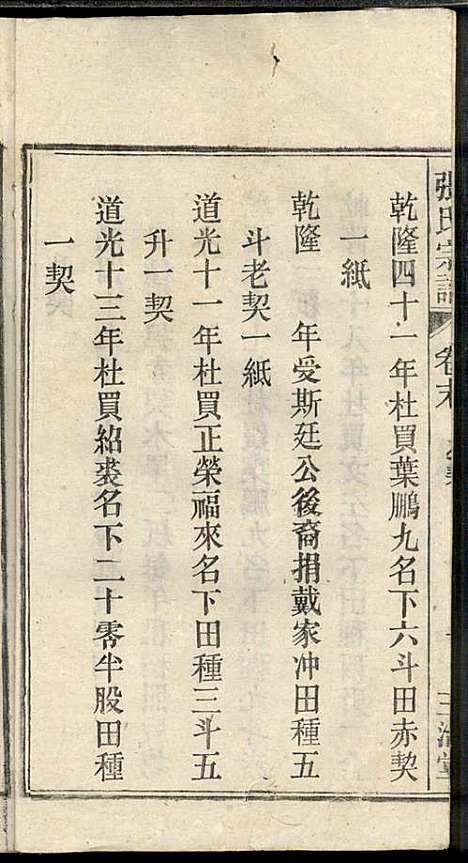 張氏宗譜
卷末
乾隆四十一年杜買葉鵬九名下六斗田赤契
一紙
乾隆　年受斯廷公後裔捐戴家冲田種五
斗老契一紙
道光十一年杜買正榮福來名下田種三斗五
升一契
道光十三年杜買紹裘名下二十零半股田種
一契